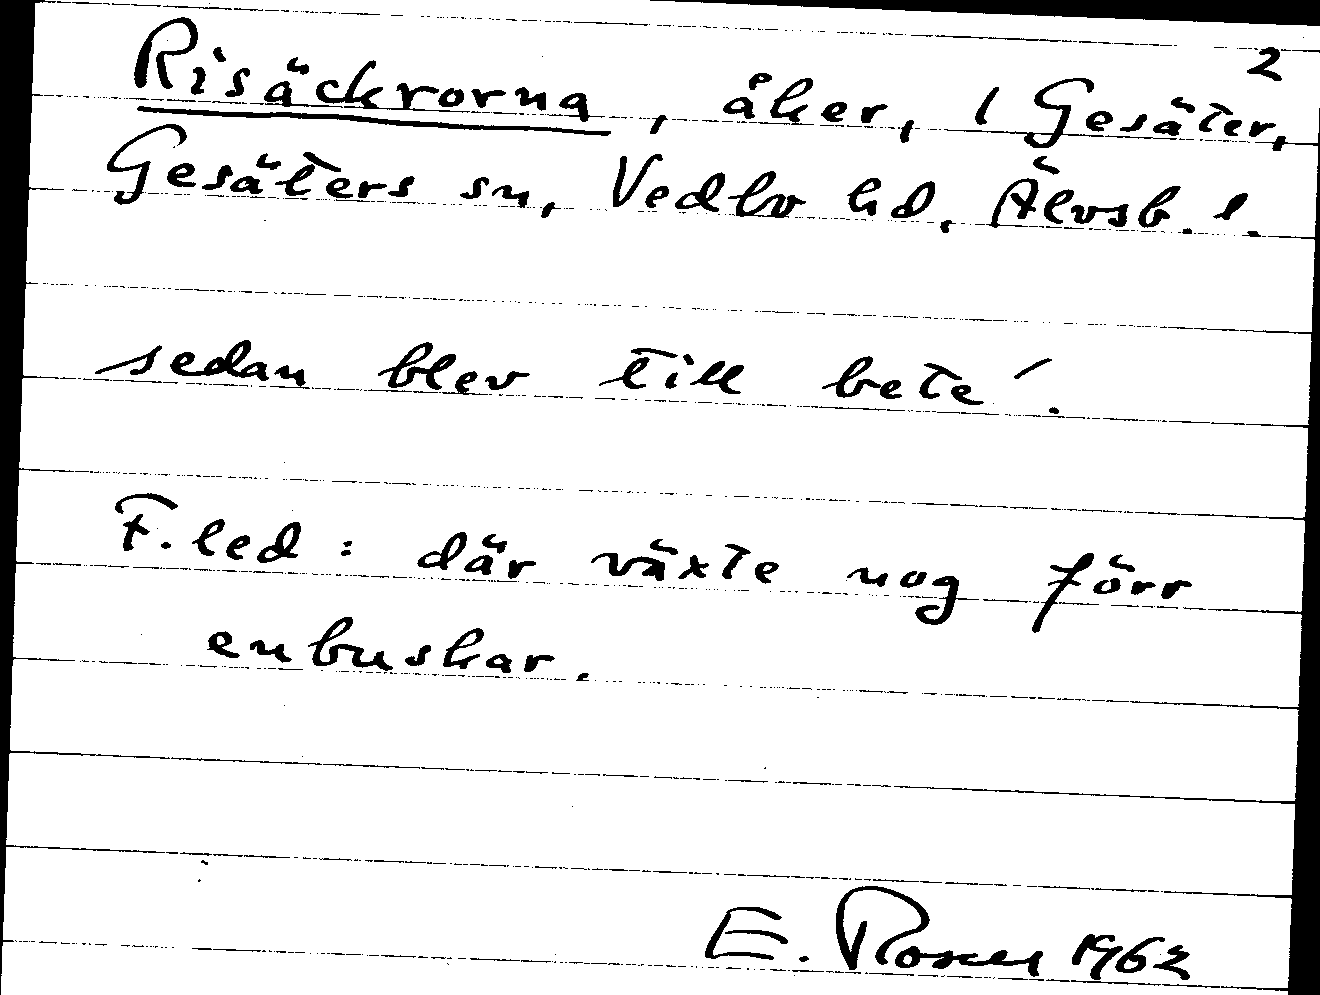 2
Risäckrorna, åker, 1 Gesäter,
Gesäters sn, Vedbo hd, Älvsb. l.
sedan blev till bete´.
F. led: där växte nog förr
enbuskar.
E. Rosell 1962